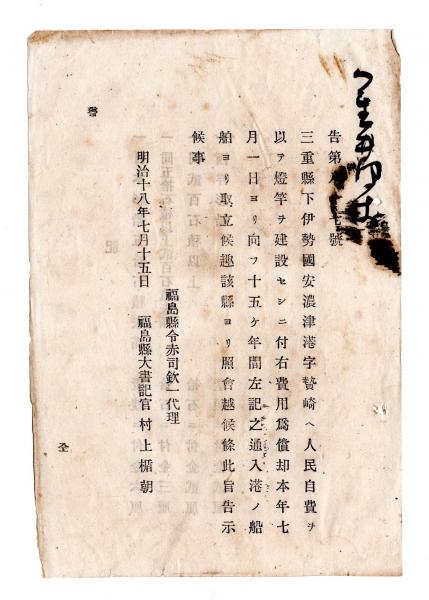 告第
號
三重縣下伊勢國安濃津港字贄崎ヘ人民自費ヲ
以テ燈竿ヲ建設セシニ付右費用爲償却本年七
月一日ヨリ向フ十五ケ年間左記之通入港ノ船
舶ヨリ取立候趣該縣ヨリ照會越候條此旨告示
候事
明治十八年七月十五日
福島縣令赤司欽一代理
福島縣大書記官村上楯朝
警
全